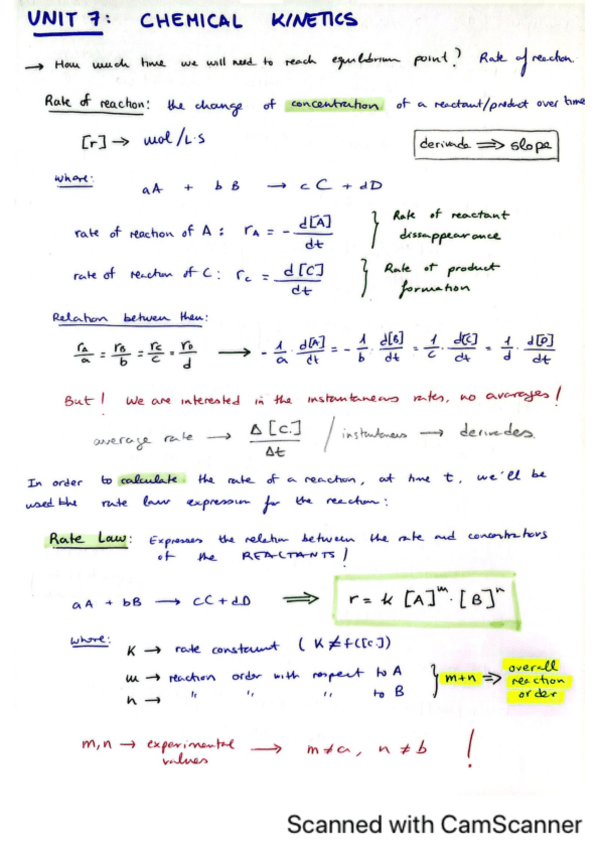 UNIT 7: CHEMICAL KINETICS
→ How much time we will need to reach equilibrium point? Rate of reaction.
Rate of reaction: the change of concentration of a reactant/product over time
[r] → mol/L·s
derivada ⇒ slope
where:
aA + bB → cC + dD
rate of reaction of A: r_A = - d[A]/dt } Rate of reactant dissappearance
rate of reaction of C: r_C = d[C]/dt } Rate of product formation
Relation between them:
r_A/a = r_B/b = r_C/c = r_D/d → - 1/a · d[A]/dt = - 1/b · d[B]/dt = 1/c · d[C]/dt = 1/d · d[D]/dt
But! We are interested in the instantaneous rates, no avarages!
average rate → Δ[c.]/Δt / instantaneous → derivedes.
In order to calculate the rate of a reaction, at time t, we'll be
used the rate law expression for the reaction:
Rate Law: Expresses the relation between the rate and concentrations
of the REACTANTS!
aA + bB → cC + dD ⇒ r = k [A]^m · [B]^n
where:
K → rate constant (K ≠ f([c.])
m → reaction order with respect to A
n → " " " to B
} m+n ⇒ overall reaction order
m,n → experimental values → m ≠ a, n ≠ b !
Scanned with CamScanner